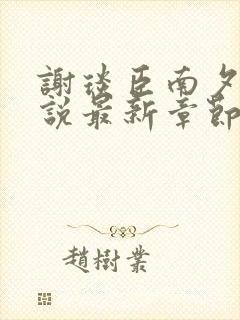 謝琰臣南夕
說最新章節
趙樹業